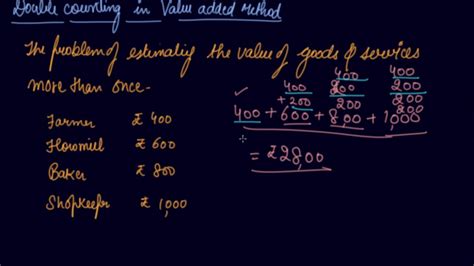 Double counting in Value added Method
The problem of estimating the value of goods & services
more than once-
Farmer ₹ 400
Flowmill ₹ 600
Baker ₹ 800
Shopkeeper ₹ 1,000
400 400 400
+200 200 200
200 200
200
400 + 600 + 800 + 1,000
= ₹2800